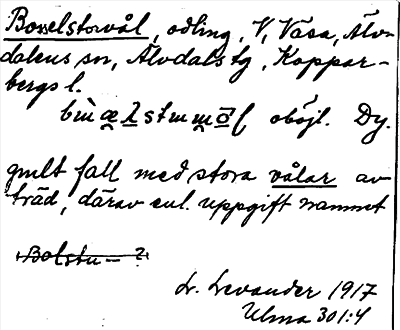 Bosselstorvål, odling, V, Väsa, Älv-
dalens sn, Älvdals tg, Koppar-
bergs l.
oböjl. Dy.
gnilt fall med stora vålar av
träd, därav enl. uppgift namnet
Bolstu- ?
L. Levander 1917
Ulma 301:4